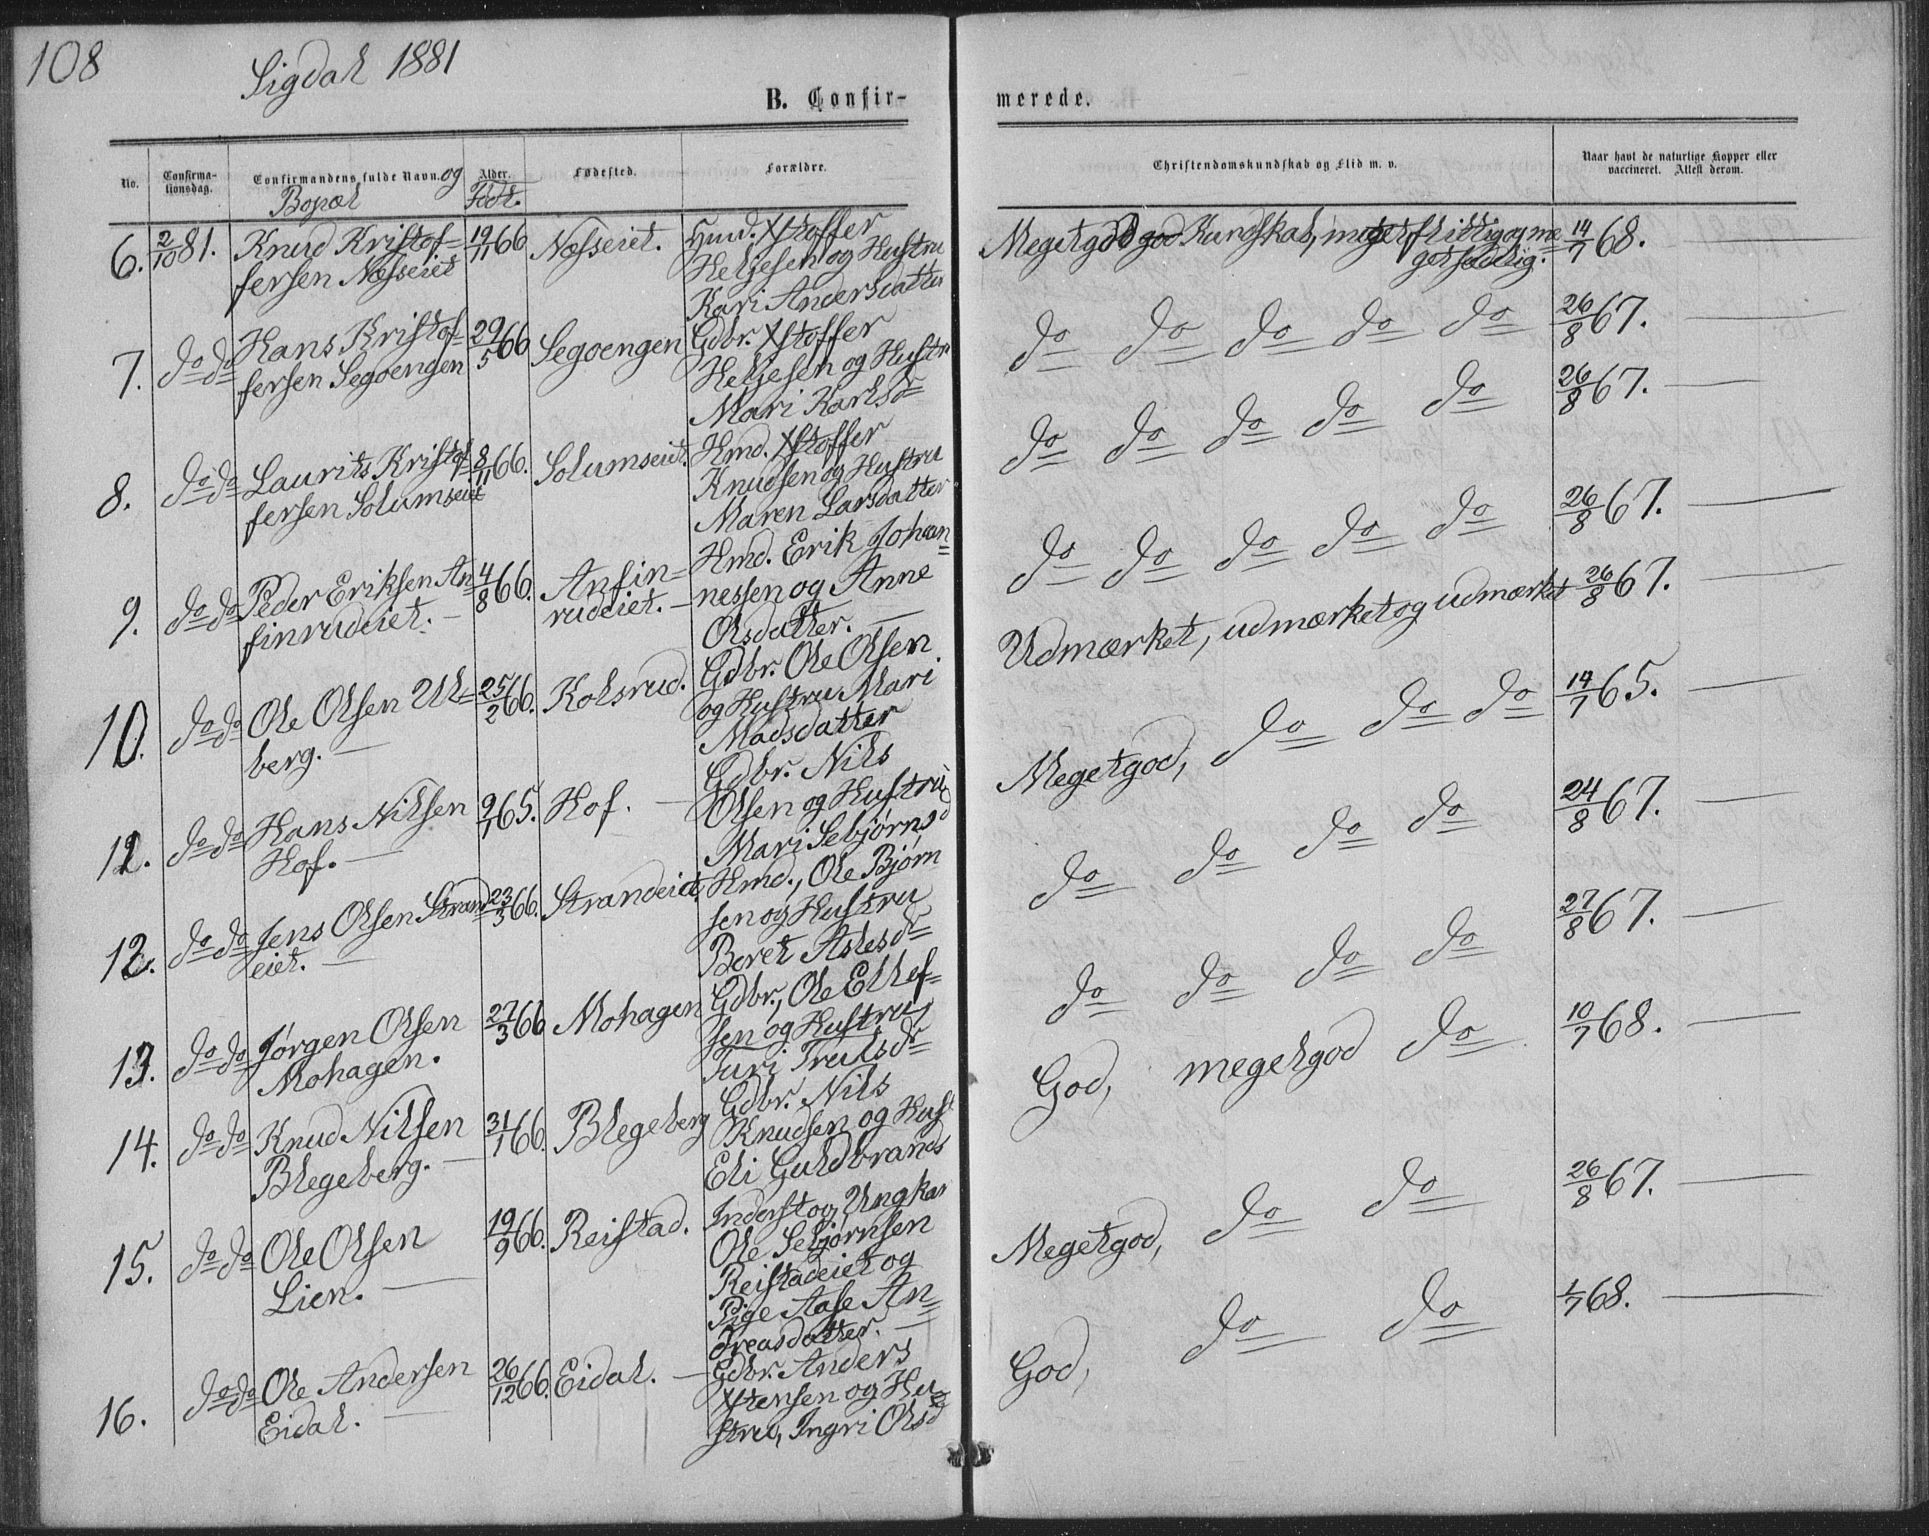 108
Sigdal 1881
B. Confir-
merede.
No.
Confirma-
tionsdag.
Confirmandens fulde Navn. og
Bopæl
Alder.
Født.
Fødested.
Forældre.
Christendomskundskab og Flid m. v.
Naar havt de naturlige Kopper eller
vaccineret. Attest derom.
6. 2/10 81. Knud Kristof- 19/11 66 Næsseiet. Hmd. Xstoffer
fersen Næsseiet Helgesen og Hustru
Kari Andersdatter
Megetgod god Kundskab, meget flittig og me
get sædelig. 14/7 68.
7. do do Hans Kristof- 29/5 66 Segoengen Gdbr. Xstoffer
fersen Segoengen Helgesen og Hustru
Mari Karlsd
do do do do do 26/8 67.
8. do do Laurits Kristof- 8/11 66. Solumseiet. Hmd. Xstoffer
fersen Solumseiet Knudsen og Hustru
Maren Larsdatter
do do do do do 26/8 67.
9. do do Peder Eriksen An- 4/8 66. Anfin- Hmd. Erik Johan-
finrudeiet. rudeiet. nessen og Anne
Olsdatter.
do do do do do 26/8 67.
10. do do Ole Olsen Ul- 25/2 66. Kolsrud. Gdbr. Ole Olsen
berg. og Hustru Mari
Madsdatter
Udmærket, udmærket og udmærket 26/8 67.
12. do do Hans Nilsen 9/1 65. Hof. Gdbr. Nils
Hof. Olsen og Hustru
Mari Sebjørnsd
Megetgod, do do do 14/7 65.
12. do do Jens Olsen Strand 23/3 66. Strandeiet, Hmd., Ole Bjørn
eiet. sen og Hustru
Beret Aslesdr
do do do do 24/8 67.
13. do do Jørgen Olsen 27/3 66 Mohagen Gdbr., Ole Ellef-
Mohagen. sen og Hustru
Turi Trulsdr
do do do do 27/8 67.
14. do do Knud Nilsen 31/1 66. Blegeberg Gdbr. Nils
Blegeberg. Knudsen og Hust
Eli Guldbrands
God, megetgod do 10/7 68.
15. do do Ole Olsen 19/9 66. Reistad. Inderst og Ungkar
Lien. Ole Sebjørnsen
Reistadeiet og
Pige Aase An-
dreasdatter.
Megetgod, do do 26/8 67.
16. do do Ole Andersen 26/12 66. Eidal. Gdbr. Anders
Eidal. Xstensen og Hu-
stru, Ingri Olsd
God, do do 1/7 68.